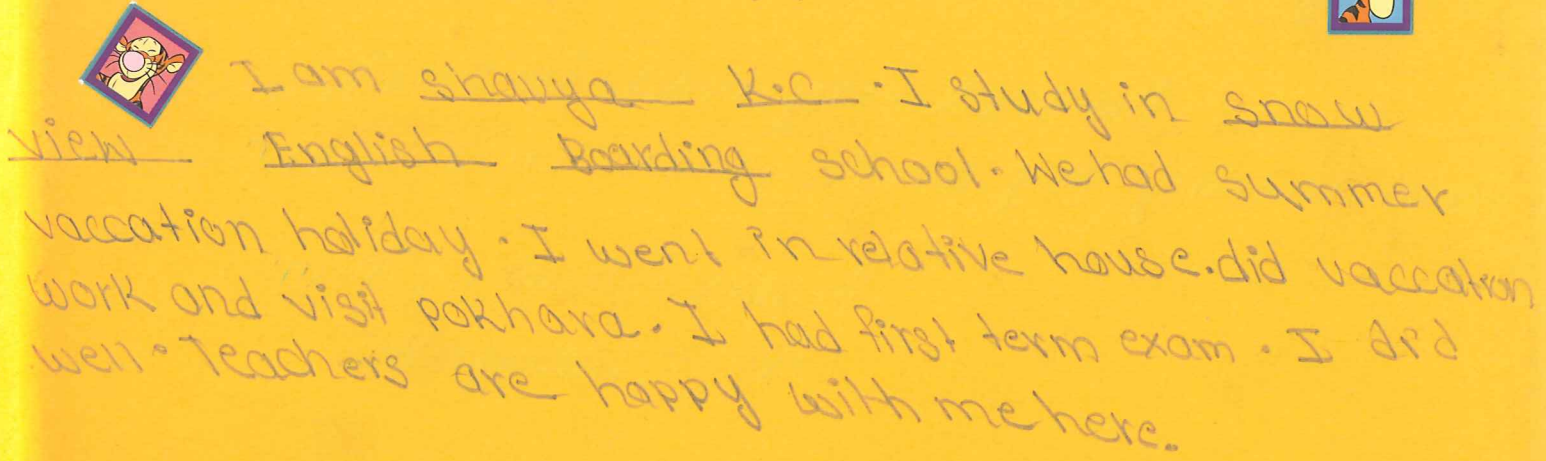 I am shavya K.C. I study in snow
view English Boarding school. We had summer
vaccation holiday. I went in relative house. did vaccation
work and visit pokhara. I had first term exam. I did
well. Teachers are happy with me here.